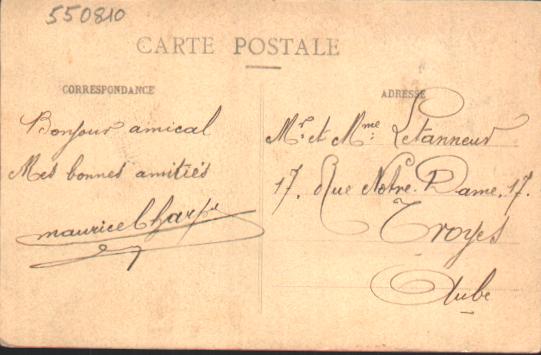 550810
CARTE POSTALE
CORRESPONDANCE
Bonjour amical
Mes bonnes amitiés
maurice Charpe
ADRESSE
Mr. et Mme: Letanneur
17. Rue Notre. Dame. 17.
Troyes
Aube